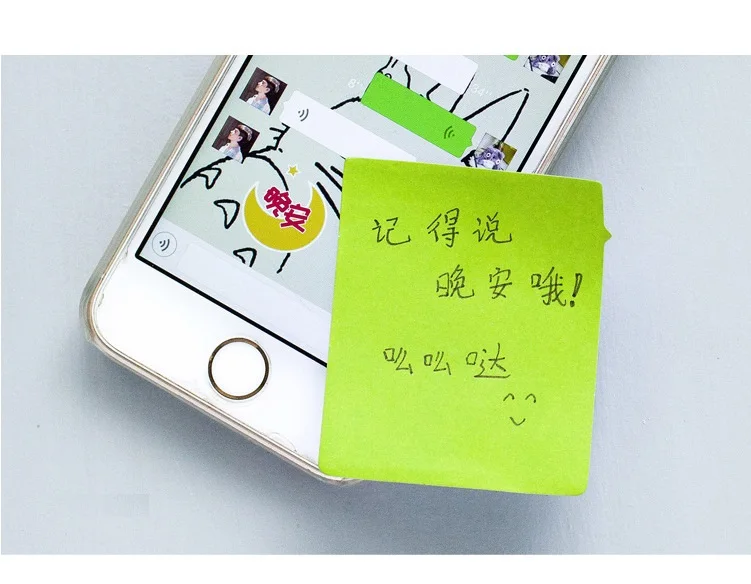 晚安
记得说
晚安哦!
么么哒